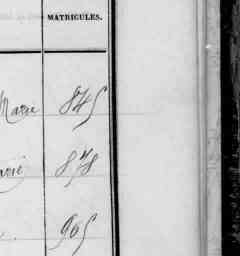 MATRICULES.
Marie 845
arie 878
965